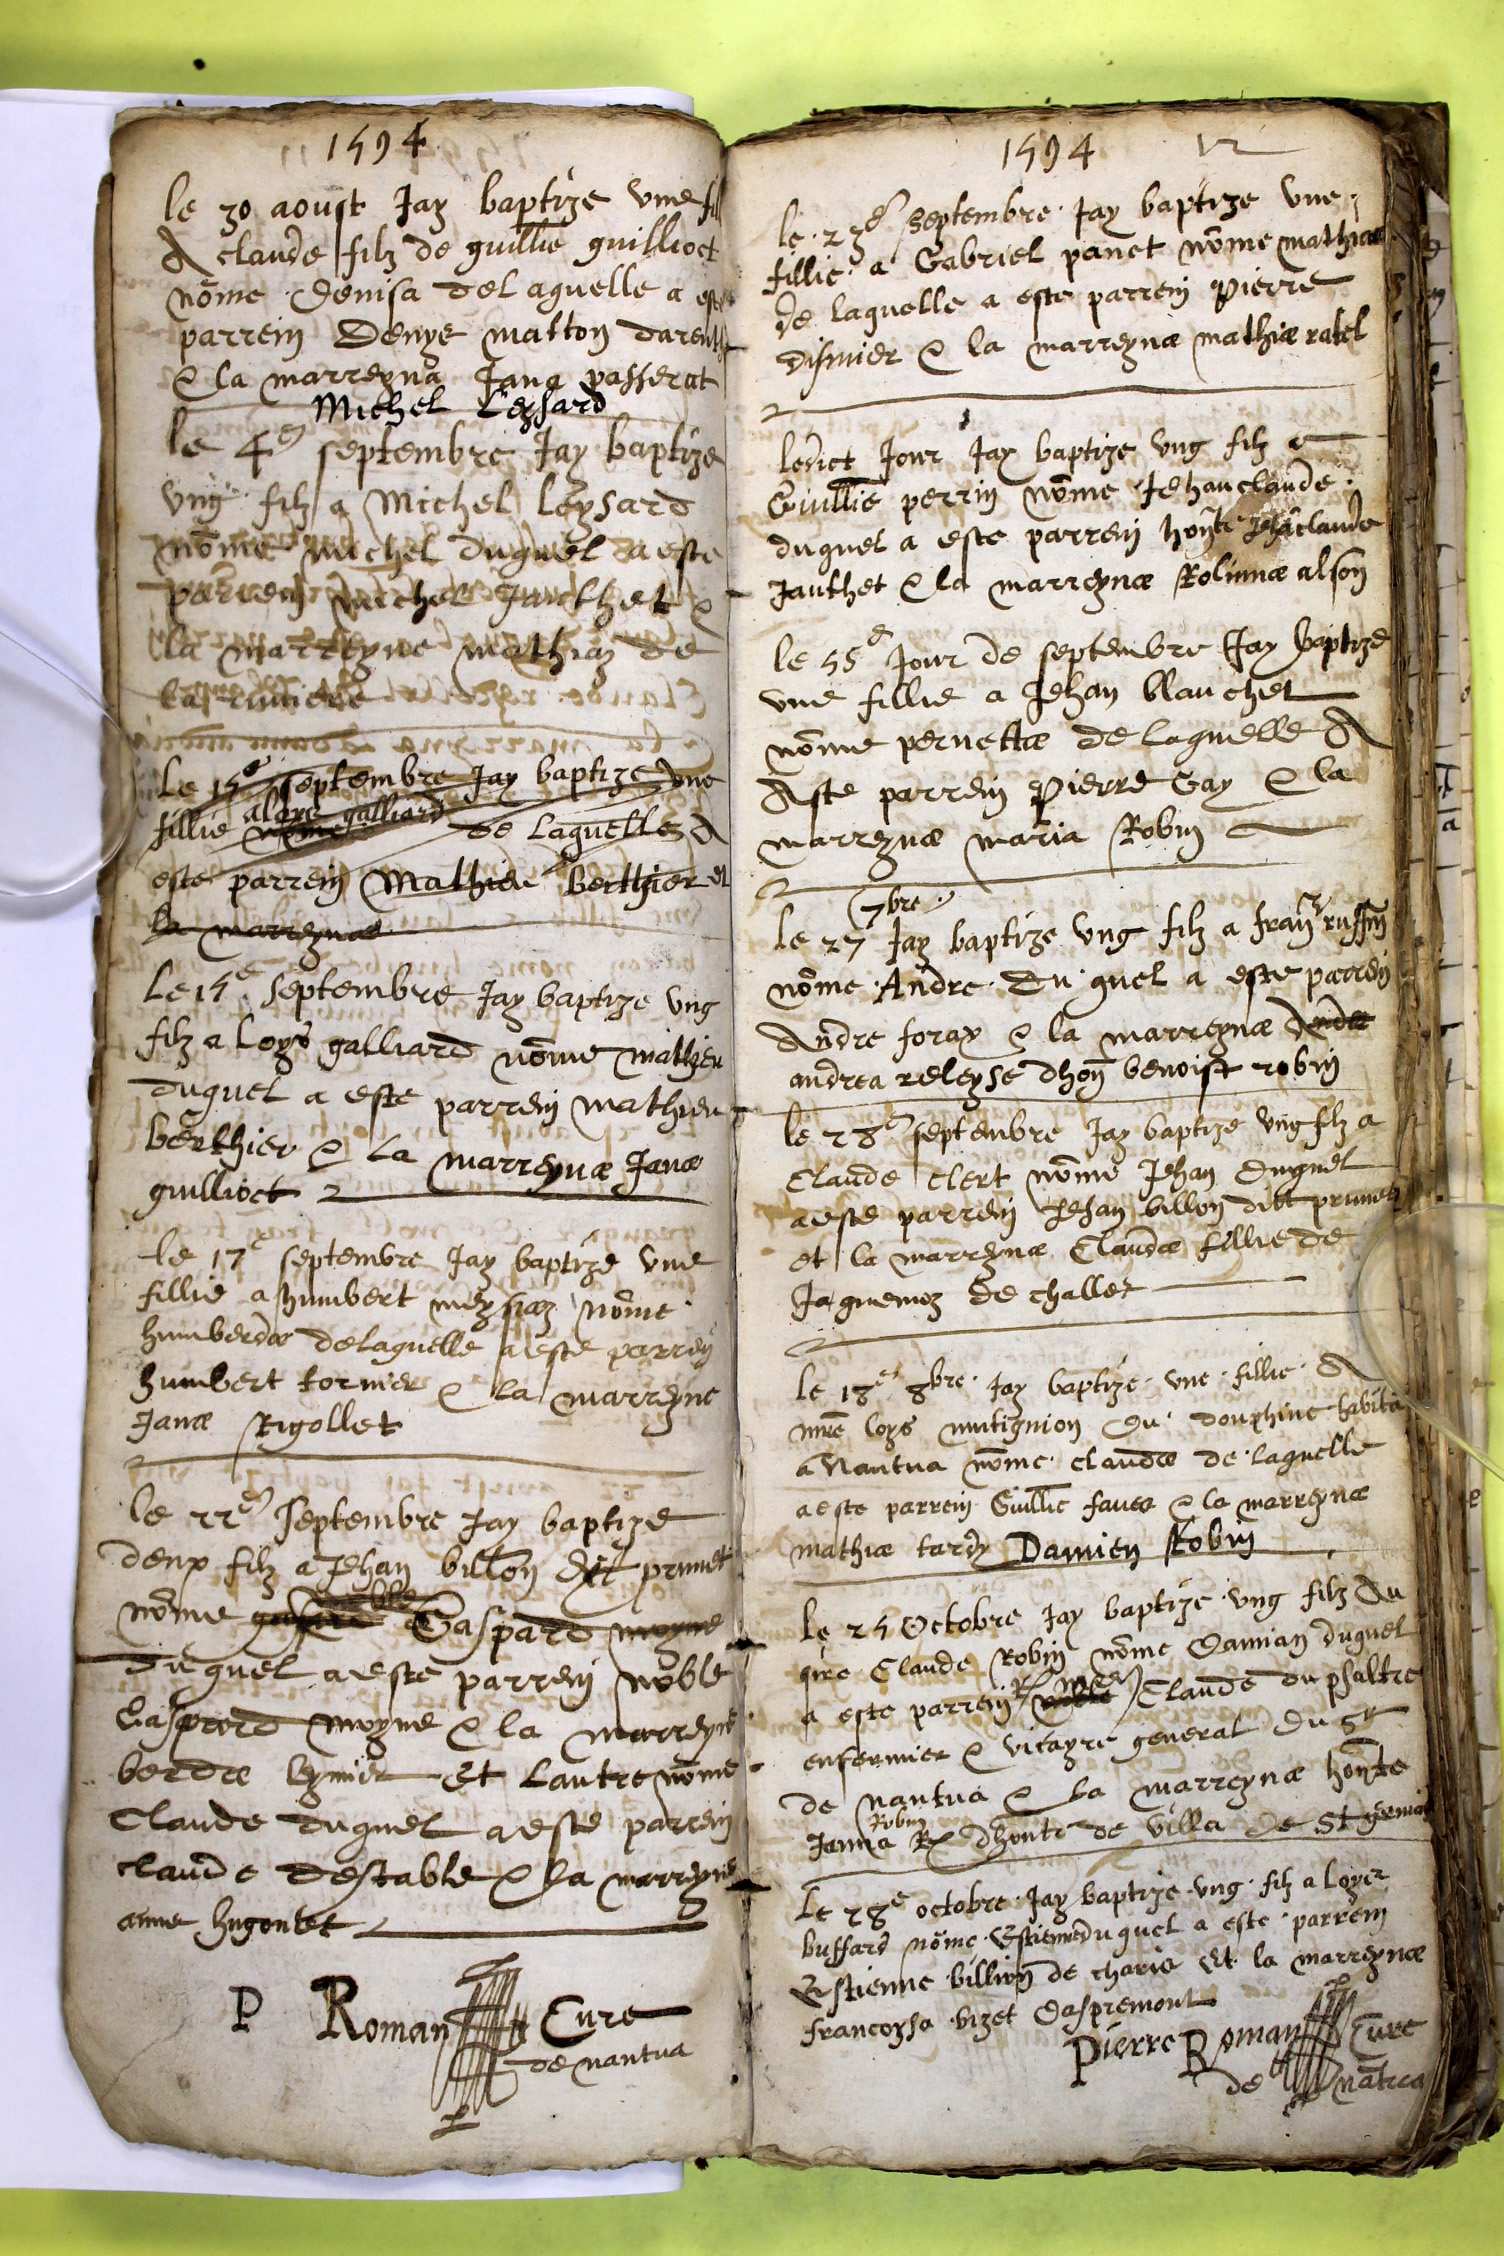 1594
le 30 aoust Jay baptize vne fill
A claude filz de guillie guillioct
nōme denisa de laquelle a este
parrein Denys matton
& la marreyna Jana passerat
Michel Leysard
le 4e septembre Jay baptize
vng filz a Michel Leysard
nōme michel duquel a este
parrein michel Janthet &
la marreyne mathiaz de

Le 15e septembre Jay baptize vne
a loys galliard
fillie nōme de laquelle A
este parrein Mathieu berthier et
la marreynæ
Le 15e septembre Jay baptize vng
filz a Loys galliard nōme mathieu
duquel a este parrein mathieu
berthier & la marreynæ Janæ
guillioct
le 17e septembre Jay baptize vne
fillie a humbert meysiaz nōme
humberdæ de laquelle a este parrein
humbert tornier & la marreyne
Janæ Rigollet
le 22e septembre Jay baptize
deux filz a Jehan billon dit prunet
noble
nōme Gaspard moyne
du quel a este parrein noble
Gaspard moyne & la marreyne
Et lautre nōme
Claude duquel a este parrein
claude destable & la marreyne
anne hugonet
P Roman Cure
de nantua
1594 12
le 23e septembre Jay baptize vne
fillie a Gabriel panet nōme mathiæ
de laquelle a este parrein pierre
& la marreynæ mathiæ ratel
ledict Jour Jay baptize vng filz a
Guillie perrin nōme Jehanclaude
duquel a este parrein honte Jehāclaude
Janthet & la marreynæ
le 55e Jour de septembre Jay baptize
vne fillie a Jehan blanchet
nōme pernettæ de laquelle A
Aste parrein pierre Gay & la
marreynæ maria Robin
7bre
le 27 Jay baptize vng filz a ruffin
nōme Andre du quel a este parrein
Andre foray & la marreynæ Andree
andrea releyse dhon benoist robin
le 28e septembre Jay baptize vng filz a
Claude clert nōme Jehan duquel
a este parrein Jehan billon dict prunet
et la marreynæ Claudæ fillie de
Jaquemoz de challes
le 13e 8bre Jay baptize vne fillie A
loys mutignion du douphine habita
a Nantua nōme claudæ de laquelle
a este parrein Guillie favea & la marreynæ
mathiæ tardy Damien Robin
le 25 Octobre Jay baptize vng filz Au
sire Claude Robin nōme Damian duquel
a este parrein Claude du psaltre
enfermier & vicayre general du Sr
de nantua & la marreynæ honte
Robin
Janna dhonte de villa de St germai
Le 28e octobre Jay baptize vng filz a Loyet
buffard nōme Estienne duquel a este parrein
Estienne billion de charis Et la marreynæ
francoysa vizet daspremont
Pierre Roman Cure
de nātua